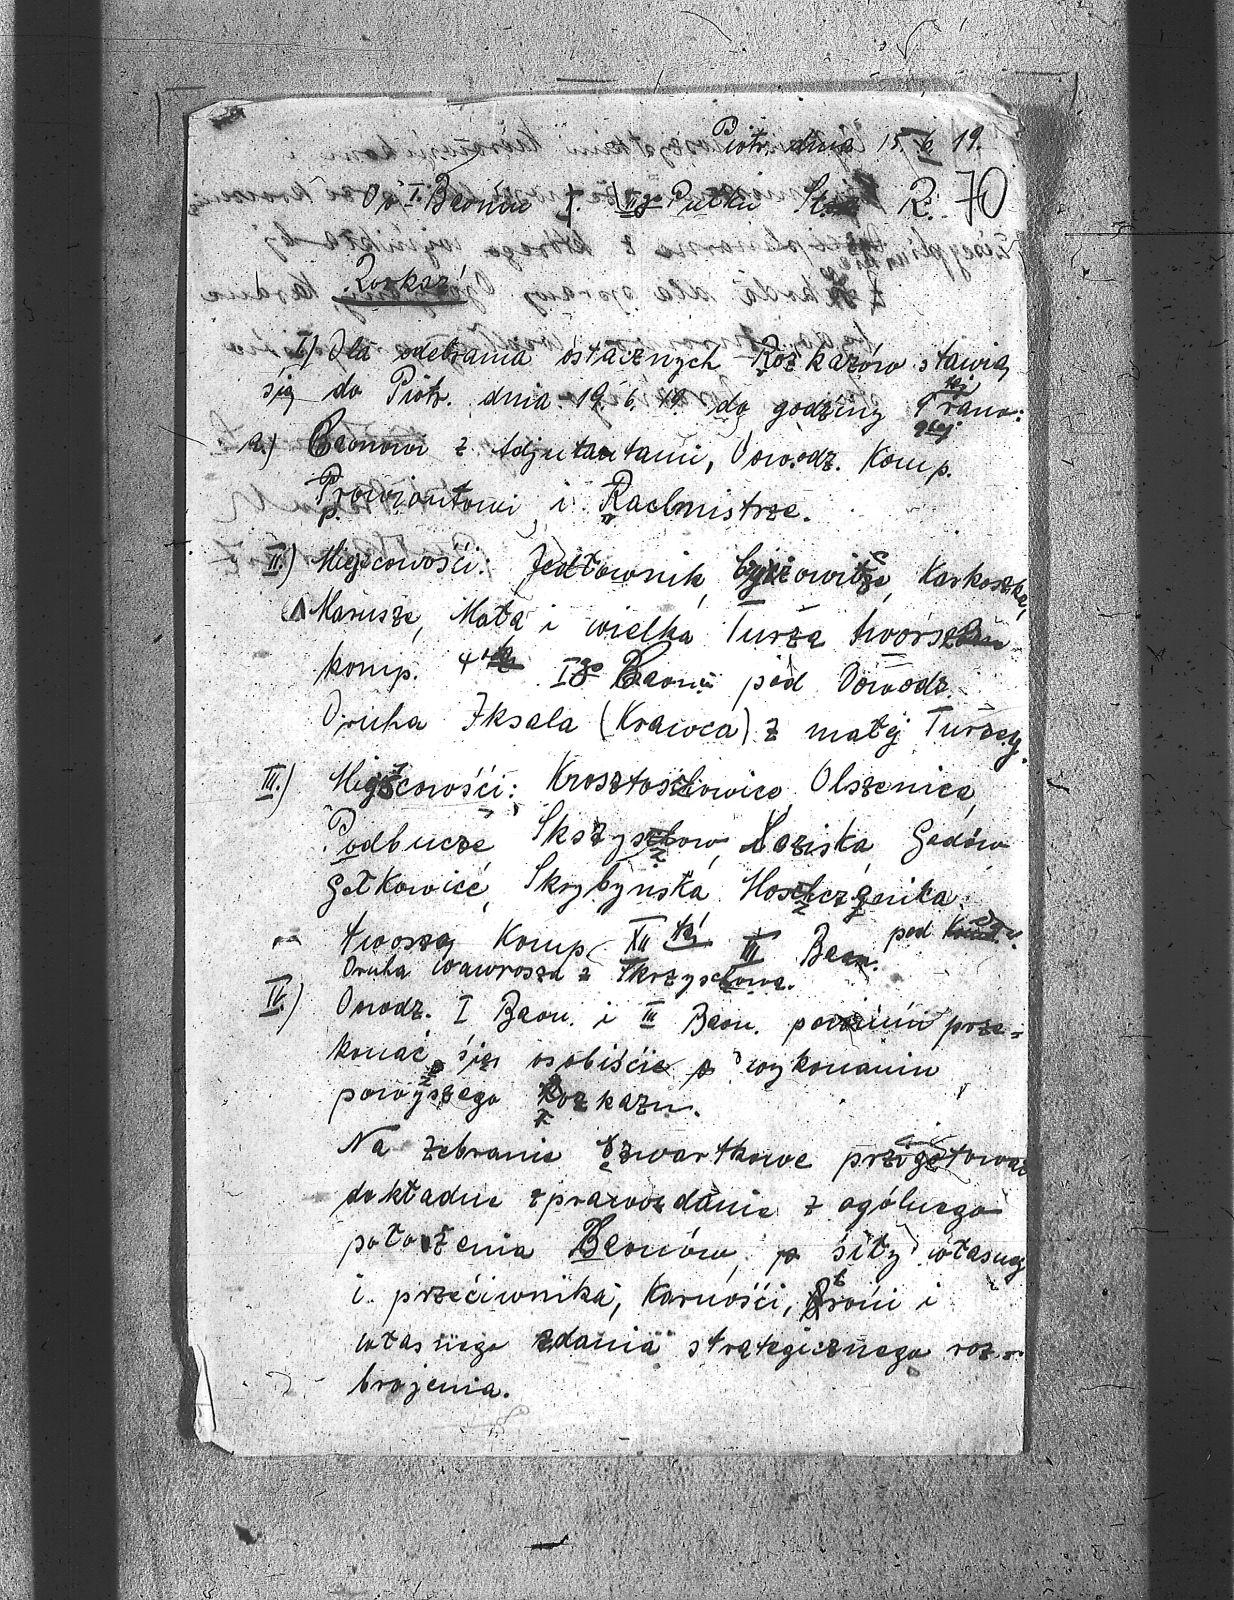 Piotr. dnia 15 6 19.
Do I. Baonu 7. Pułku R. 70
Rozkaz
I) Dla odebrania ostacznych Rozkazów stawią
się do Piotr. dnia 19. 6. 19. do godziny 9 tej rano:
a.) Baonowi z Adjutantami, Dowodz. Komp.
Prowiantowi i Rachmistrze.
II.) Miejscowości: Jedłownik, Karkoszka,
Marusze, Mała i wielka Turza tworszą
komp. 4 tą I go Baonu pod Dowodz.
Druha Iksala (Krawca) z małej Turzey.
III.) Miejscowości: Krosztoszowice, Olszenice,
Podbucze, Skszyszow, Łaziska, Godów
Gołkowice, Skrybyńska
tworzą Komp. XII tą III Baon. pod
Druha Wawrosza z Skrzyszowa.
IV.) Dowodz. I Baon. i III Baon. powinni prze-
konać się osobiście o wykonaniu
powyższego Rozkazu.
Na zebranie czwartkowe przygotować
dokładne sprawozdanie z ogólnego
położenia Baonów, o siły własnej
i przeciwnika, Karności, broni i
własnego zdania strategicznego roz-
brojenia.